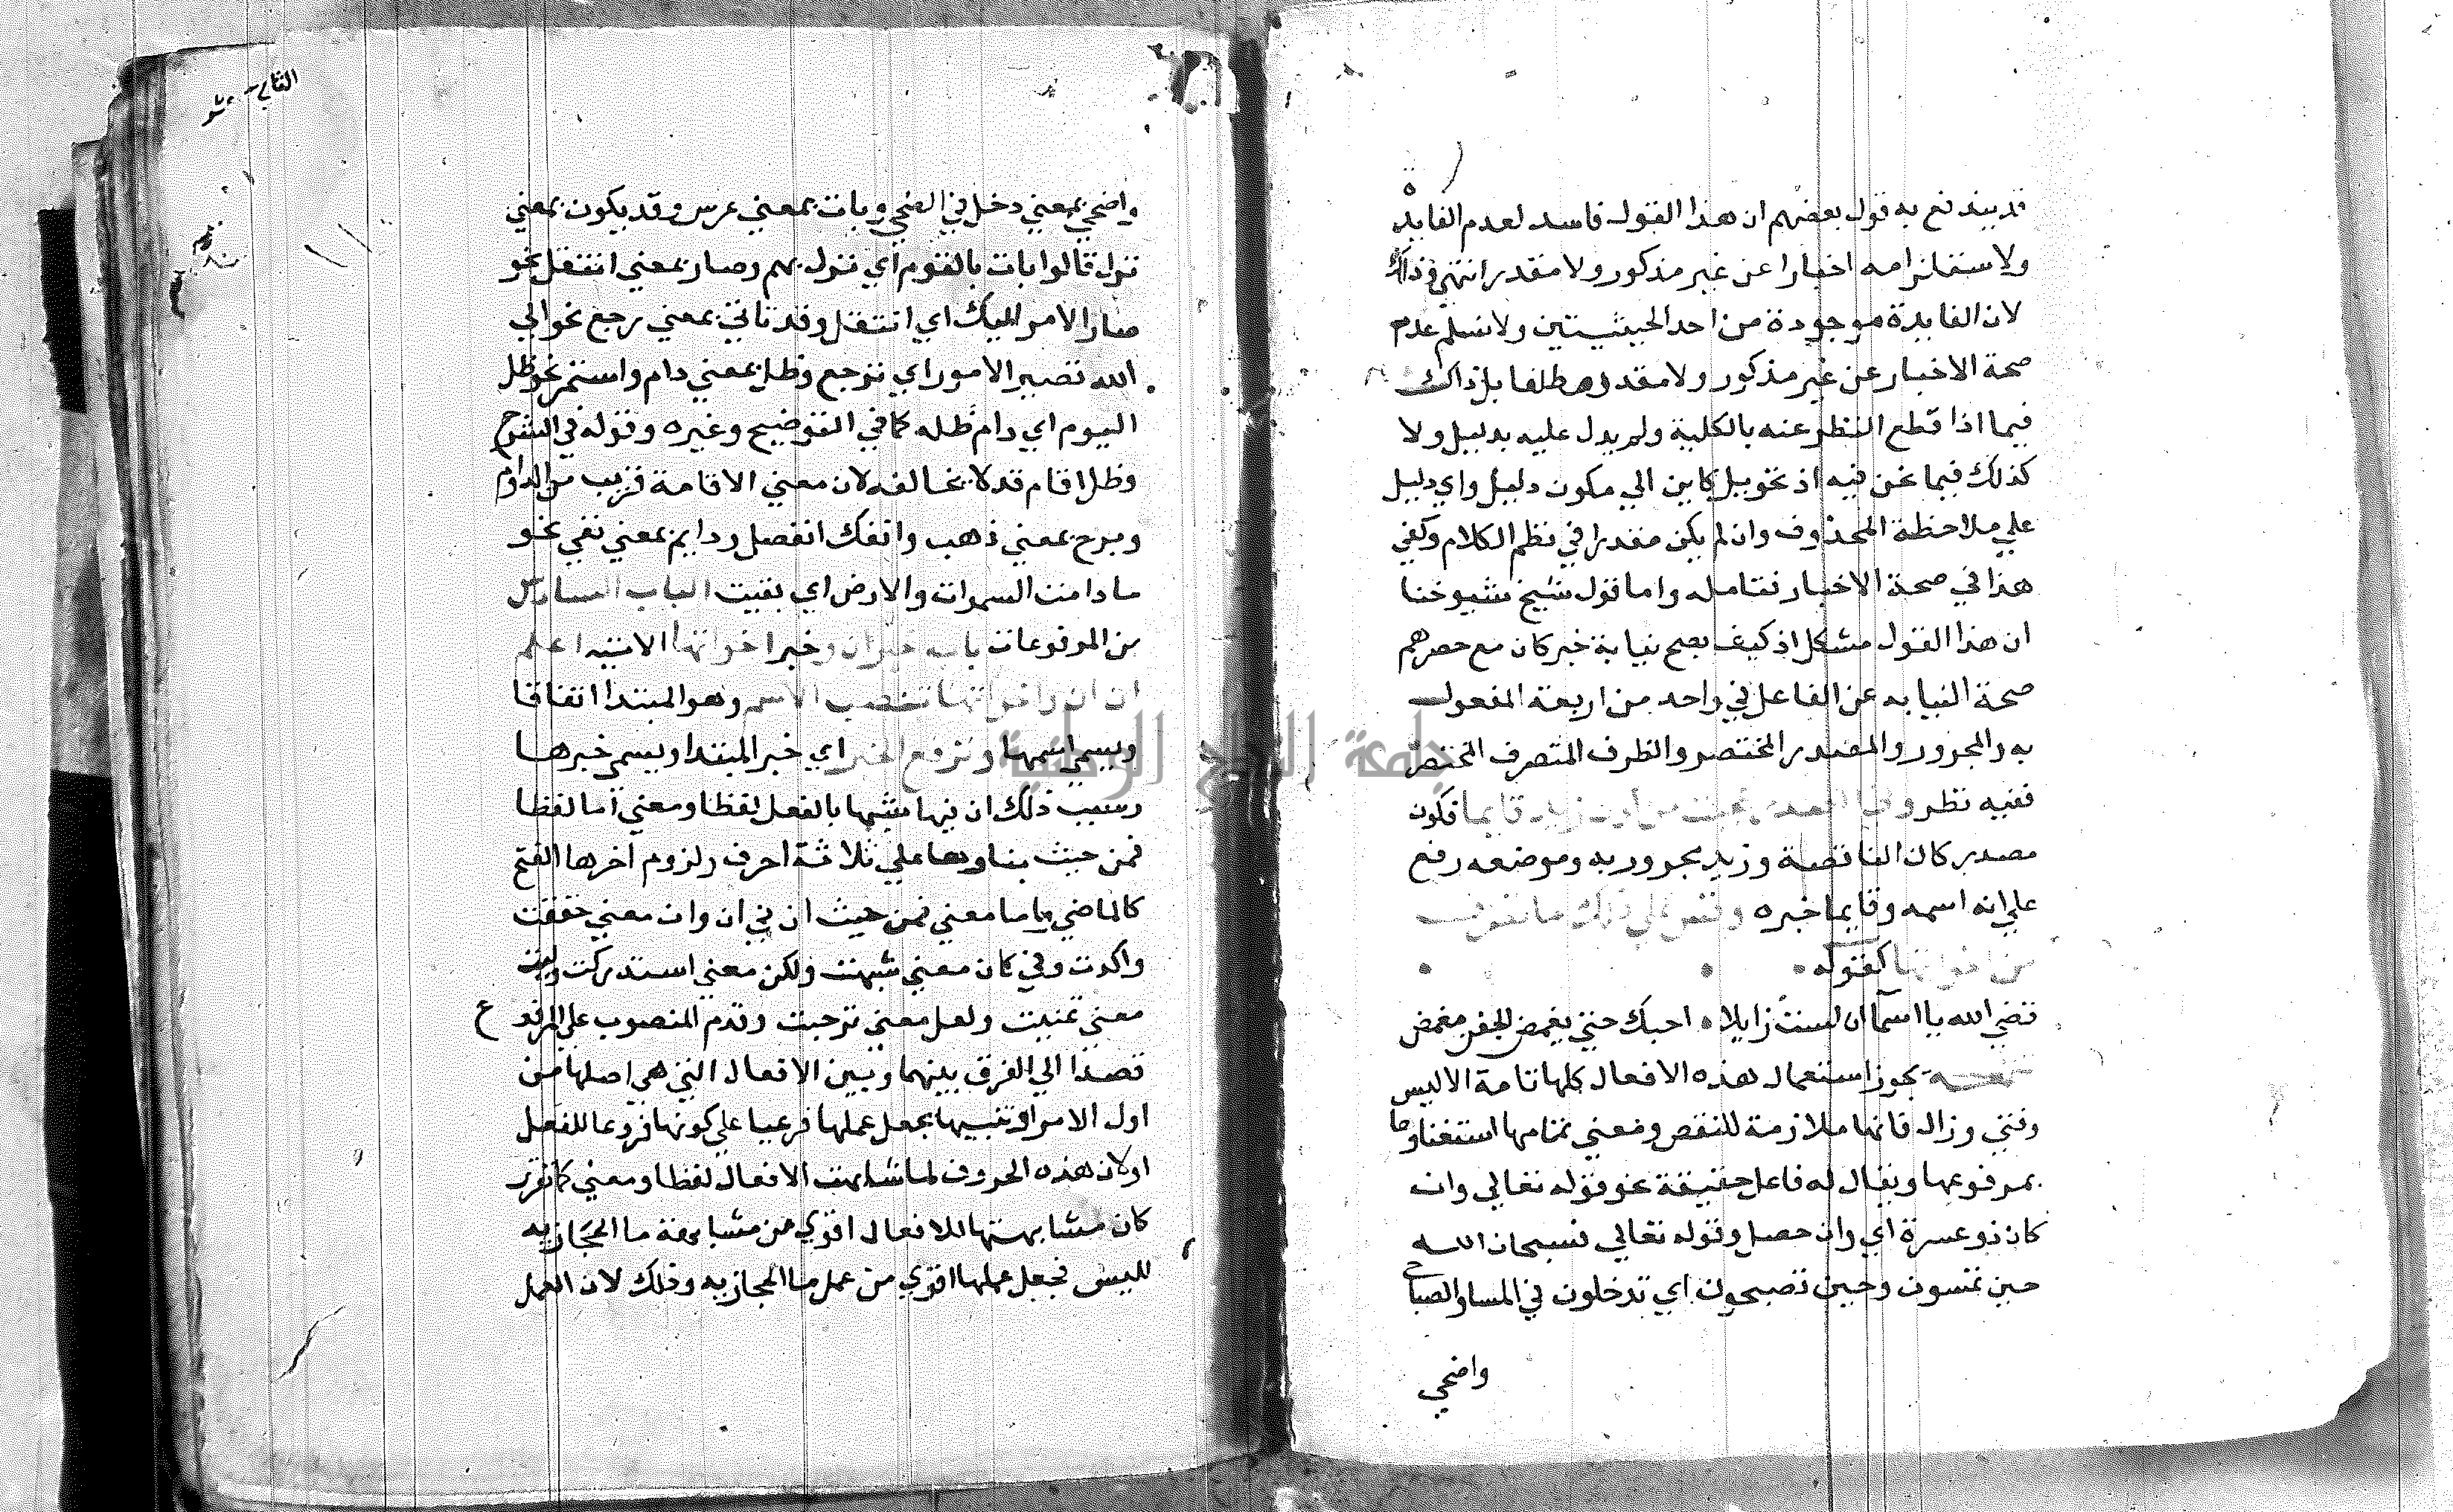 قد يندفع به قول بعضهم ان هذا القول فاسد لعدم الفايدة
ولاستلزامه اخبارا عن غير مذكور ولا مقدر انتهي وذلك
لان الفايدة موجودة من احد الحيثيتين ولا نسلم عدم
صحة الاخبار عن غير مذكور ولا مقدر مطلقا بل ذاك
فيما اذا قطع النظر عنه بالكلية ولم يدل عليه بدليل ولا
كذلك فيما نحن فيه اذ تحويل كاين الي مكون دليل واي دليل
علي ملاحظة المحذوف وان لم يكن مقدرا في نظم الكلام وكفي
هذا في صحة الاخبار فتامله واما قول شيخ شيوخنا
ان هذا القول مشكل اذ كيف يصح نيابة خبر كان مع حصرهم
صحة النيابه عن الفاعل في واحد من اربعة المفعول
به والمجرور والمصدر المختص والظرف المتصرف المختص
ففيه نظر وفي المصدر عجبت من كون زيد قايما فكون
مصدر كان الناقصة وزيد مجرور به وموضعه رفع
علي انه اسمه وقايما خبره وقس علي ذلك ما تصرف
من اخواتها كقوله
قضي الله يا اسما ان لست زايلا احبك حتي يغمض الجفن مغمض
تتمه يجوز استعمال هذه الافعال كلها تامة الا ليس
وفتي وزال فانها ملازمة للنقص ومعني تمامها استغناوها
بمرفوعها ويقال له فاعل حقيقة نحو قوله تعالي وان
كان ذو عسرة اي وان حصل وقوله تعالي فسبحان الله
حين تمسون وحين تصبحون اي تدخلون في المسا والصباح
واضحي
الثاني عشر
واضحي بمعني دخل في الضحي وبات بمعني عرس وقد يكون بمعني
نزل قالوا بات بالقوم اي نزل بهم وصار بمعني انتقل نحو
صار الامر اليك اي انتقل وقد تاتي بمعني رجع نحو الي
الله تصير الامور اي ترجع وظل بمعني دام واستمر نحو ظل
اليوم اي دام ظله كما في التوضيح وغيره وقوله في الشرح
وظل اقام قد لا يخالفه لان معني الاقامة قريب من الدوام
وبرح بمعني ذهب وانفك انفصل ودايم بمعني بقي نحو
ما دامت السموات والارض اي بقيت الباب السادس
من المرفوعات باب خبر ان وخبر اخواتها الاتيه اعلم
ان ان واخواتها تنصب الاسم وهو المبتدا اتفاقا
ويسمي اسمها وترفع الخبر اي خبر المبتدا ويسمي خبرها
وسبب ذلك ان فيها شبها بالفعل لفظا ومعني اما لفظا
فمن حيث بناوها علي ثلاثة احرف ولزوم اخرها الفتح
كالماضي واما معني فمن حيث ان في ان وان معني حققت
واكدت وفي كان معني شبهت ولكن معني استدركت وليت
معني تمنيت ولعل معني ترجيت وقدم المنصوب علي المرفوع
قصدا الي الفرق بينهما وبين الافعال التي هي اصلها من
اول الامر او تنبيها بجعل عملها فرعيا علي كونها فروعا للفعل
او لان هذه الحروف لما شابهت الافعال لفظا ومعني كما تقرر
كان مشابهتها للافعال اقوي من مشابهة ما الحجازيه
لليس فجعل عملها اقوي من عمل ما الحجازيه وذلك لان العمل
جامعة النجاح الوطنية